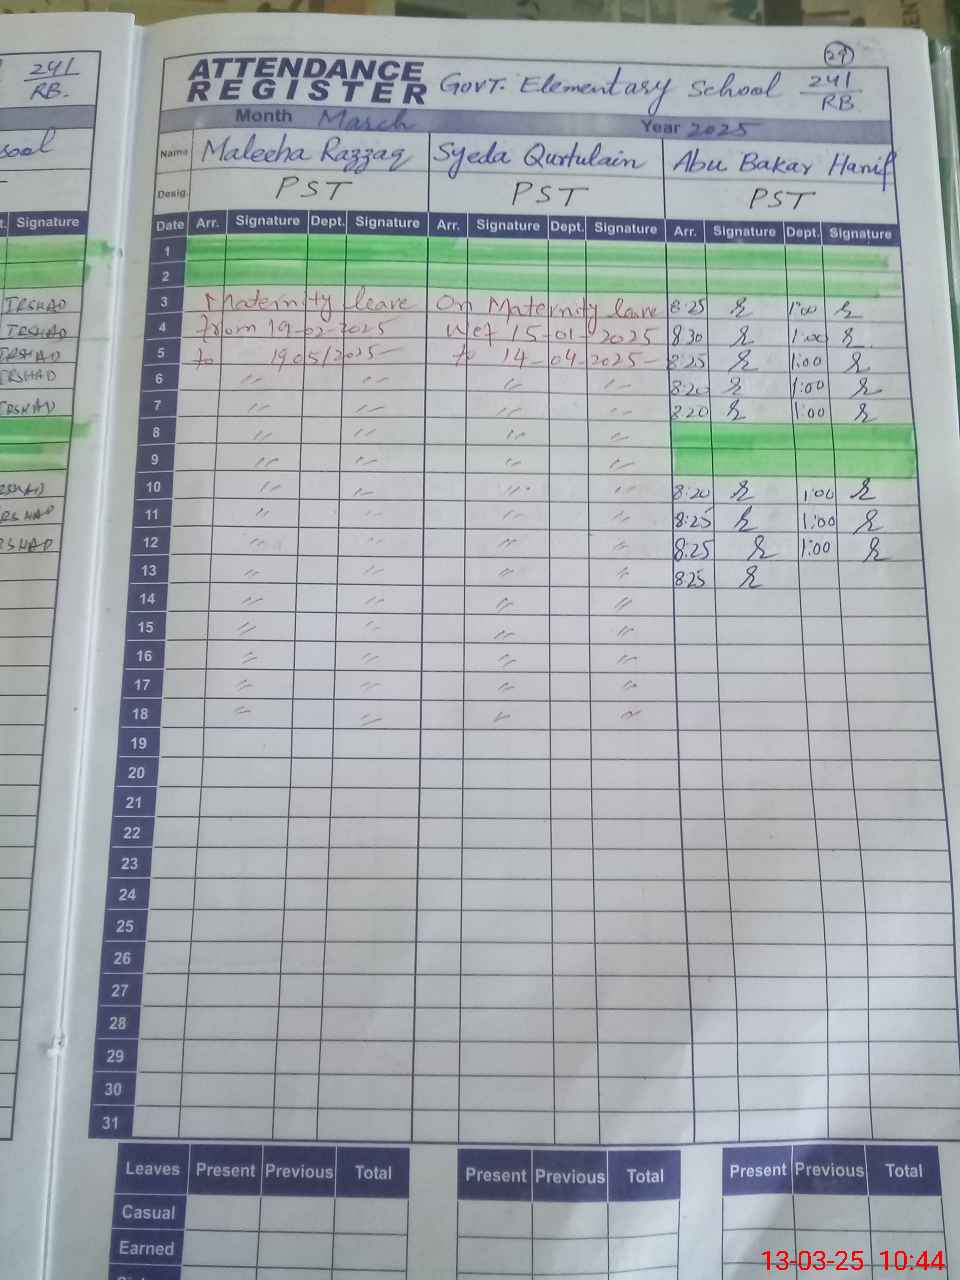 241
RB.
ATTENDANCE
REGISTER
GOVT. Elementary School 241
RB
29
Month March
Year 2025
Name Maleeha Razzaq Syeda Qurtulain Abu Bakar Hanif
Desig. PST PST PST
Signature
Date Arr. Signature Dept. Signature Arr. Signature Dept. Signature Arr. Signature Dept. Signature
1
2
IRSHAD 3 Maternity leave On Maternity leave 8:25 1:00
IRSHAD 4 from 19-02-2025 wef 15-01-2025 8:30 1:00
IRSHAD 5 to 19 05/2025- to 14-04-2025- 8:25 1:00
IRSHAD 6 " " " " 8:20 1:00
IRSHAD 7 " " " " 8:20 1:00
8 " " " "
9 " " " "
10 " " " " 8:20 1:00
11 " " " " 8:25 1:00
12 " " " " 8:25 1:00
13 " " " " 8:25
14 " " " "
15 " " " "
16 " " " "
17 " " " "
18 " " " "
19
20
21
22
23
24
25
26
27
28
29
30
31
Leaves Present Previous Total Present Previous Total Present Previous Total
Casual
Earned
13-03-25 10:44